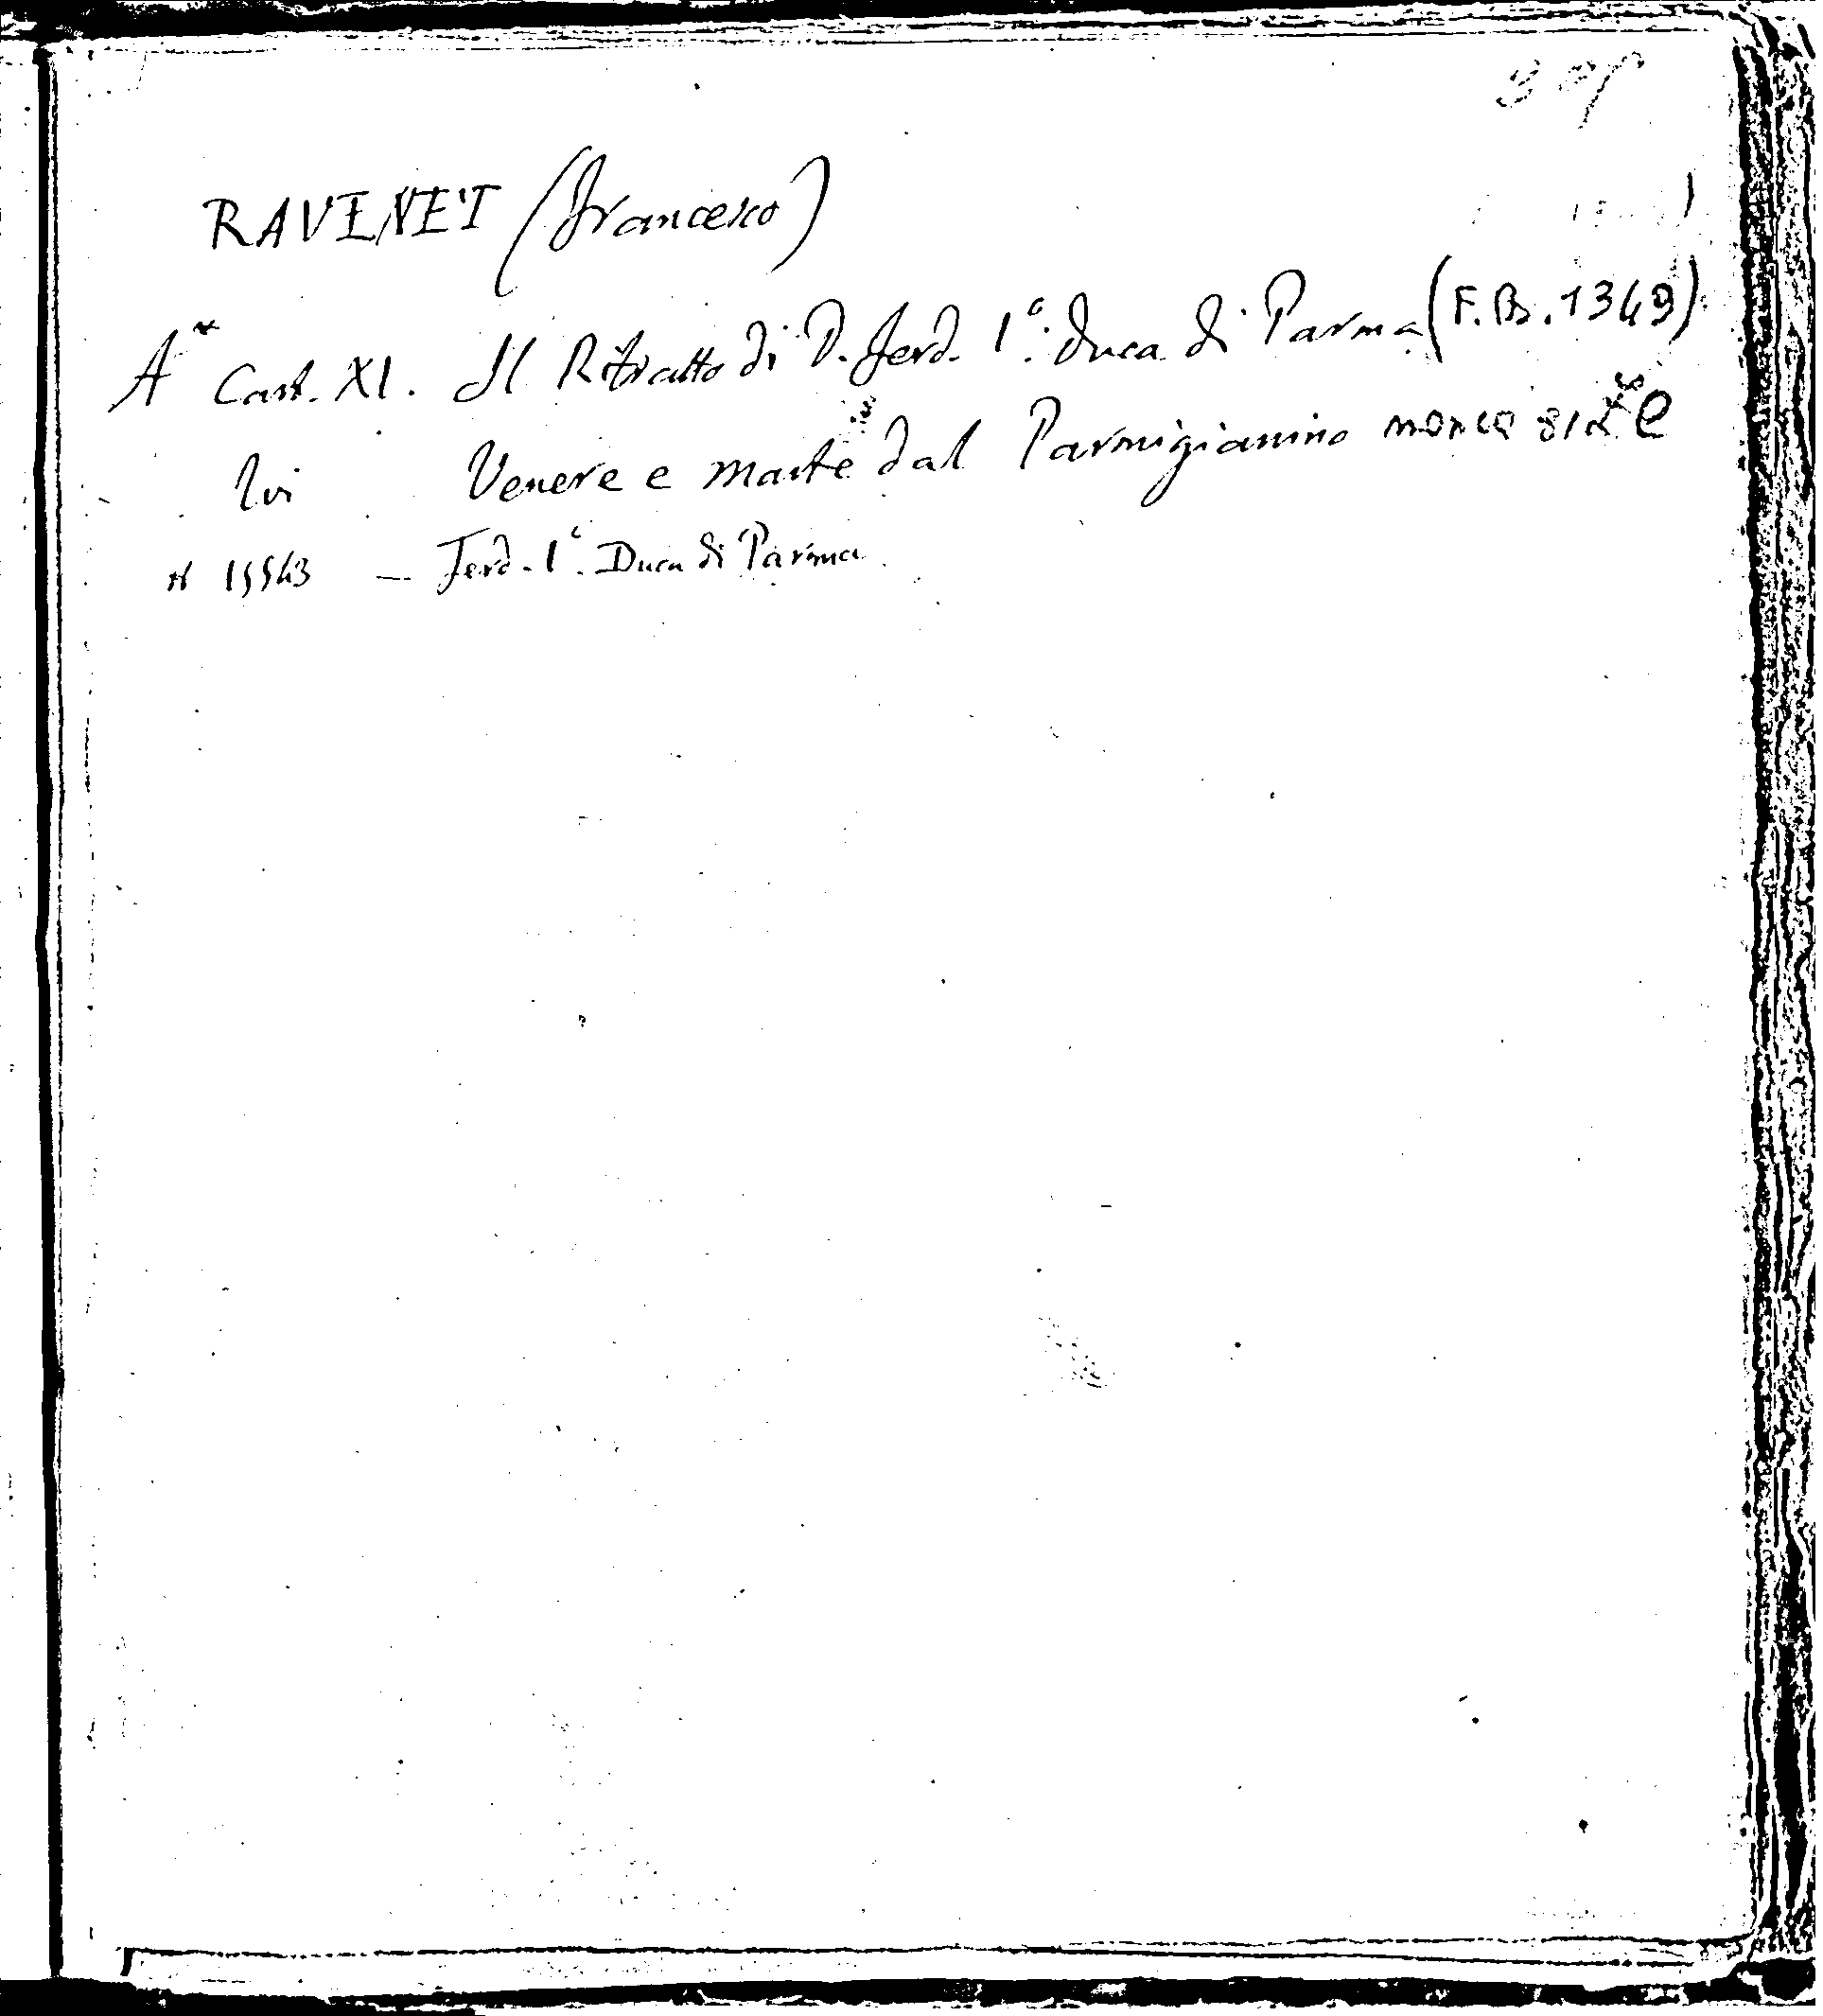 RAVENET (Francesco)
A* Cart. XI. Il Ritratto di D. Ferd. I°. Duca di Parma (F.B. 1349)
Ivi Venere e Marte dal Parmigianino manca
N 15543 — Ferd. I°. Duca di Parma